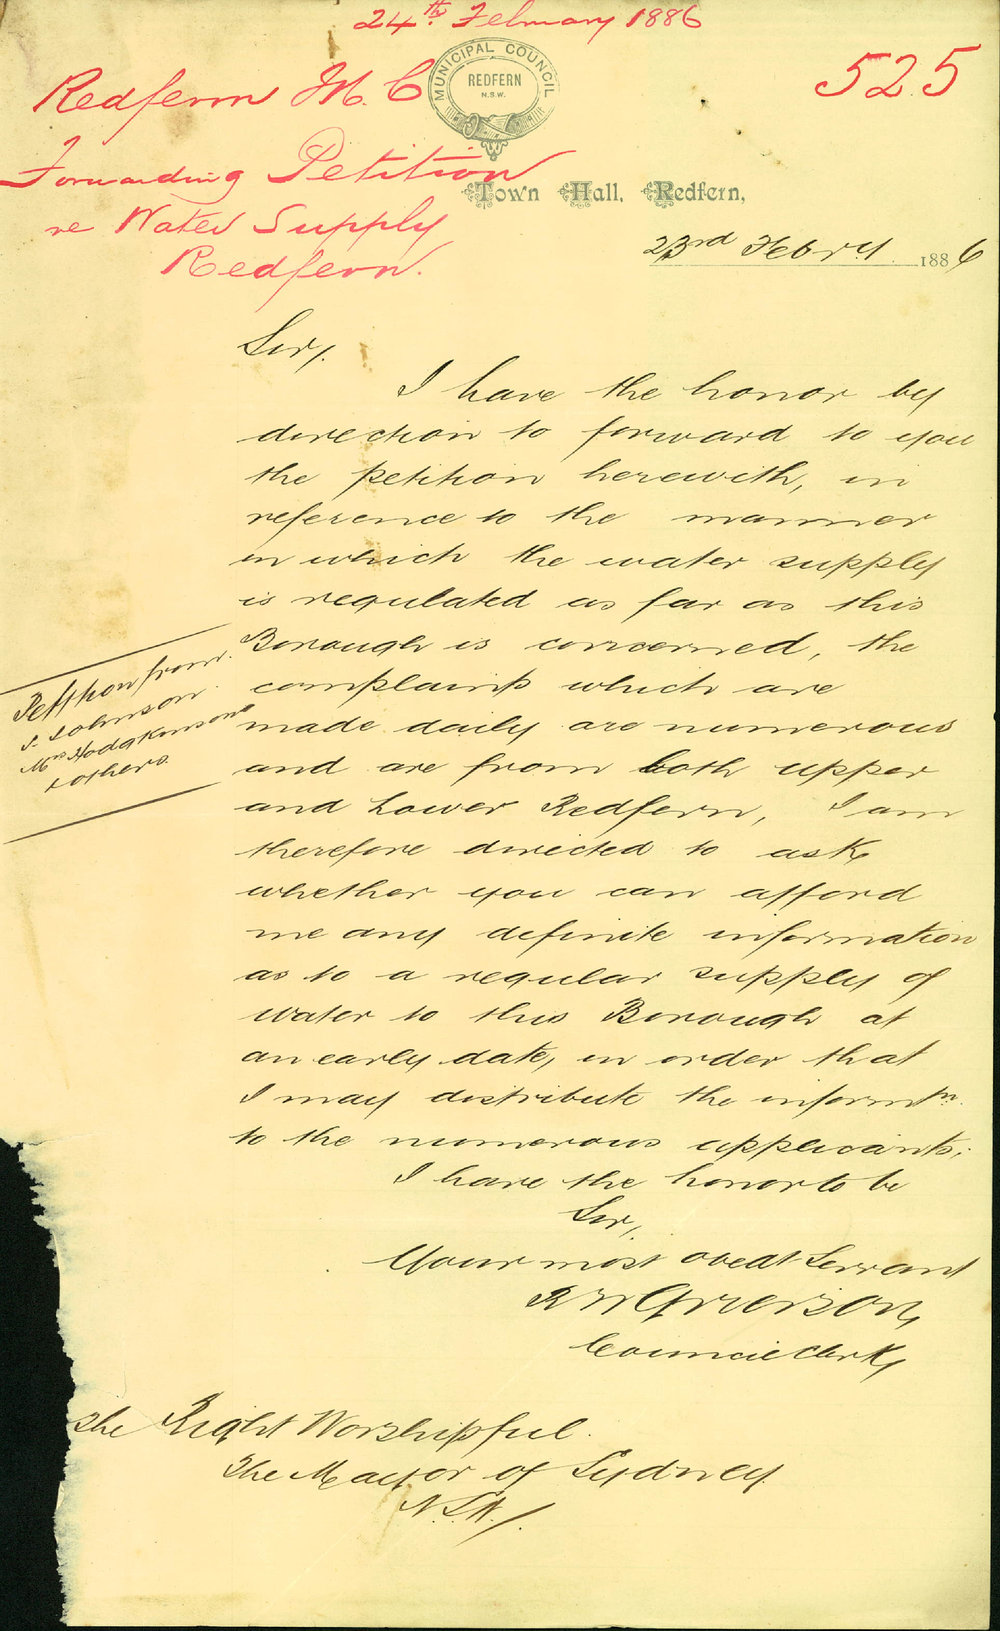 24th February 1886
Redfern M. C
525
MUNICIPAL COUNCIL
REDFERN
N.S.W.
Forwarding Petition
re Water Supply
Redfern.
Town Hall, Redfern,
23rd Febry 1886
Sir,
I have the honor by
direction to forward to you
the petition herewith, in
reference to the manner
in which the water supply
is regulated as far as this
Borough is concerned, the
complaints which are
made daily are numerous
and are from both upper
and Lower Redfern, I am
therefore directed to ask
whether you can afford
me any definite information
as to a regular supply of
water to this Borough at
an early date, in order that
I may distribute the informtn.
to the numerous applicants;
I have the honor to be
Sir,
Your most obedt Servant
R W Grierson,
Council Clerk,
Petition from
Johnson
Mrs Hodgkinson
& others.
The Right Worshipful.
The Mayor of Sydney
N.S.W.